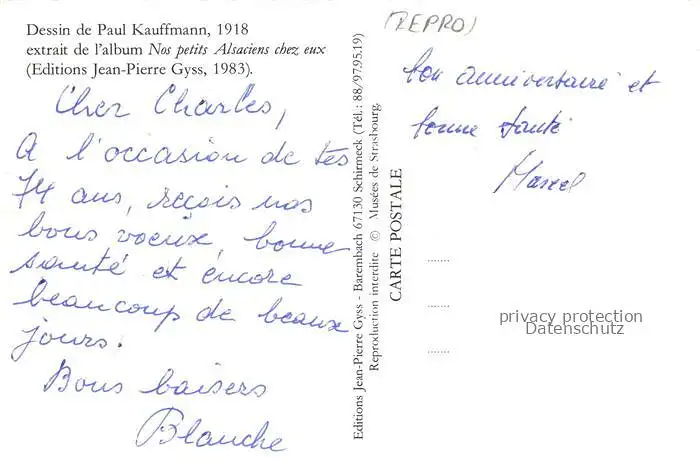 Dessin de Paul Kauffmann, 1918
extrait de l'album Nos petits Alsaciens chez eux
(Editions Jean-Pierre Gyss, 1983).
Cher Charles,
A l'occasion de tes
74 ans, reçois nos
bons voeux, bonne
santé et encore
beaucoup de beaux
jours.
Bons baisers
Blanche
Editions Jean-Pierre Gyss - Barembach 67130 Schirmeck (Tél.: 88/97.95.19)
Reproduction interdite © Musées de Strasbourg.
CARTE POSTALE
(REPRO)
bon anniversaire et
bonne santé
Marcel
privacy protection
Datenschutz